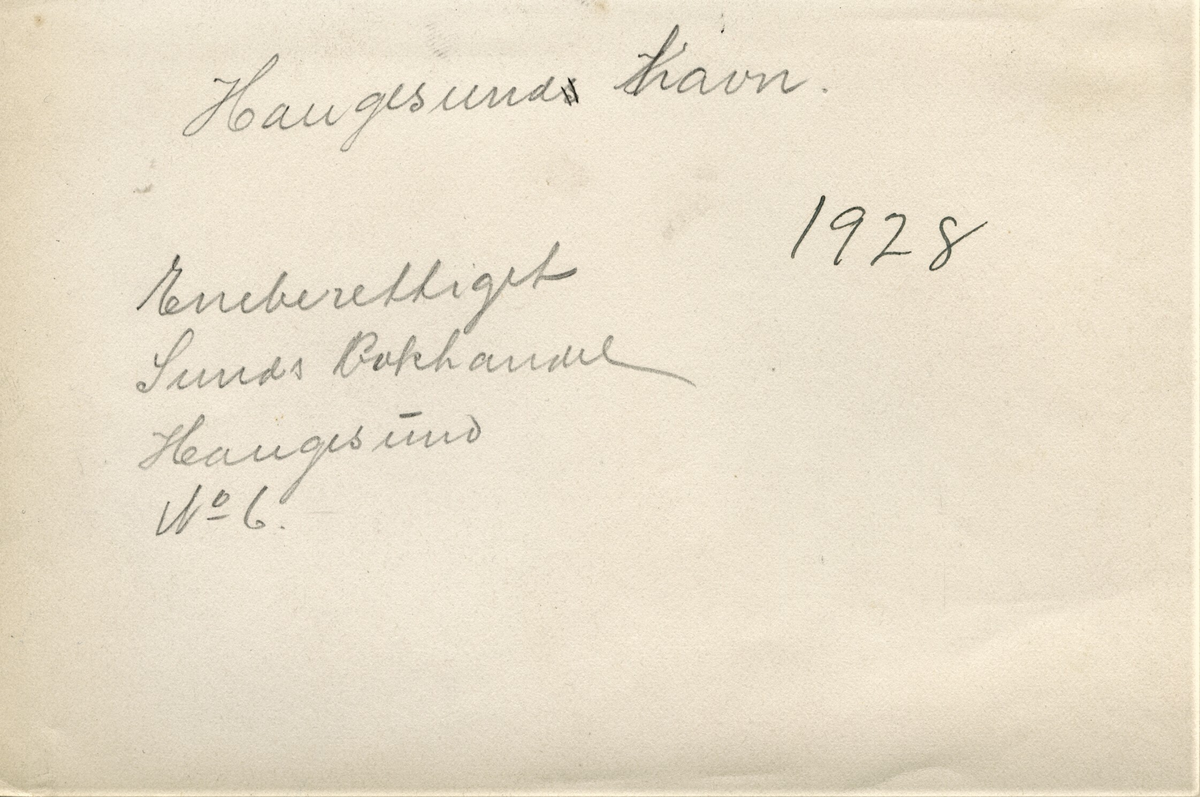 Haugesunds Havn.
1928
Eneberettiget
Sunds Bokhandel
Haugesund
No 6.